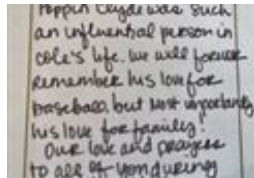 Poppin Clyde was such
an influential person in
Cole's life. We will forever
remember his love for
baseball, but most importantly
his love for family!
Our love and prayers
to all of you during